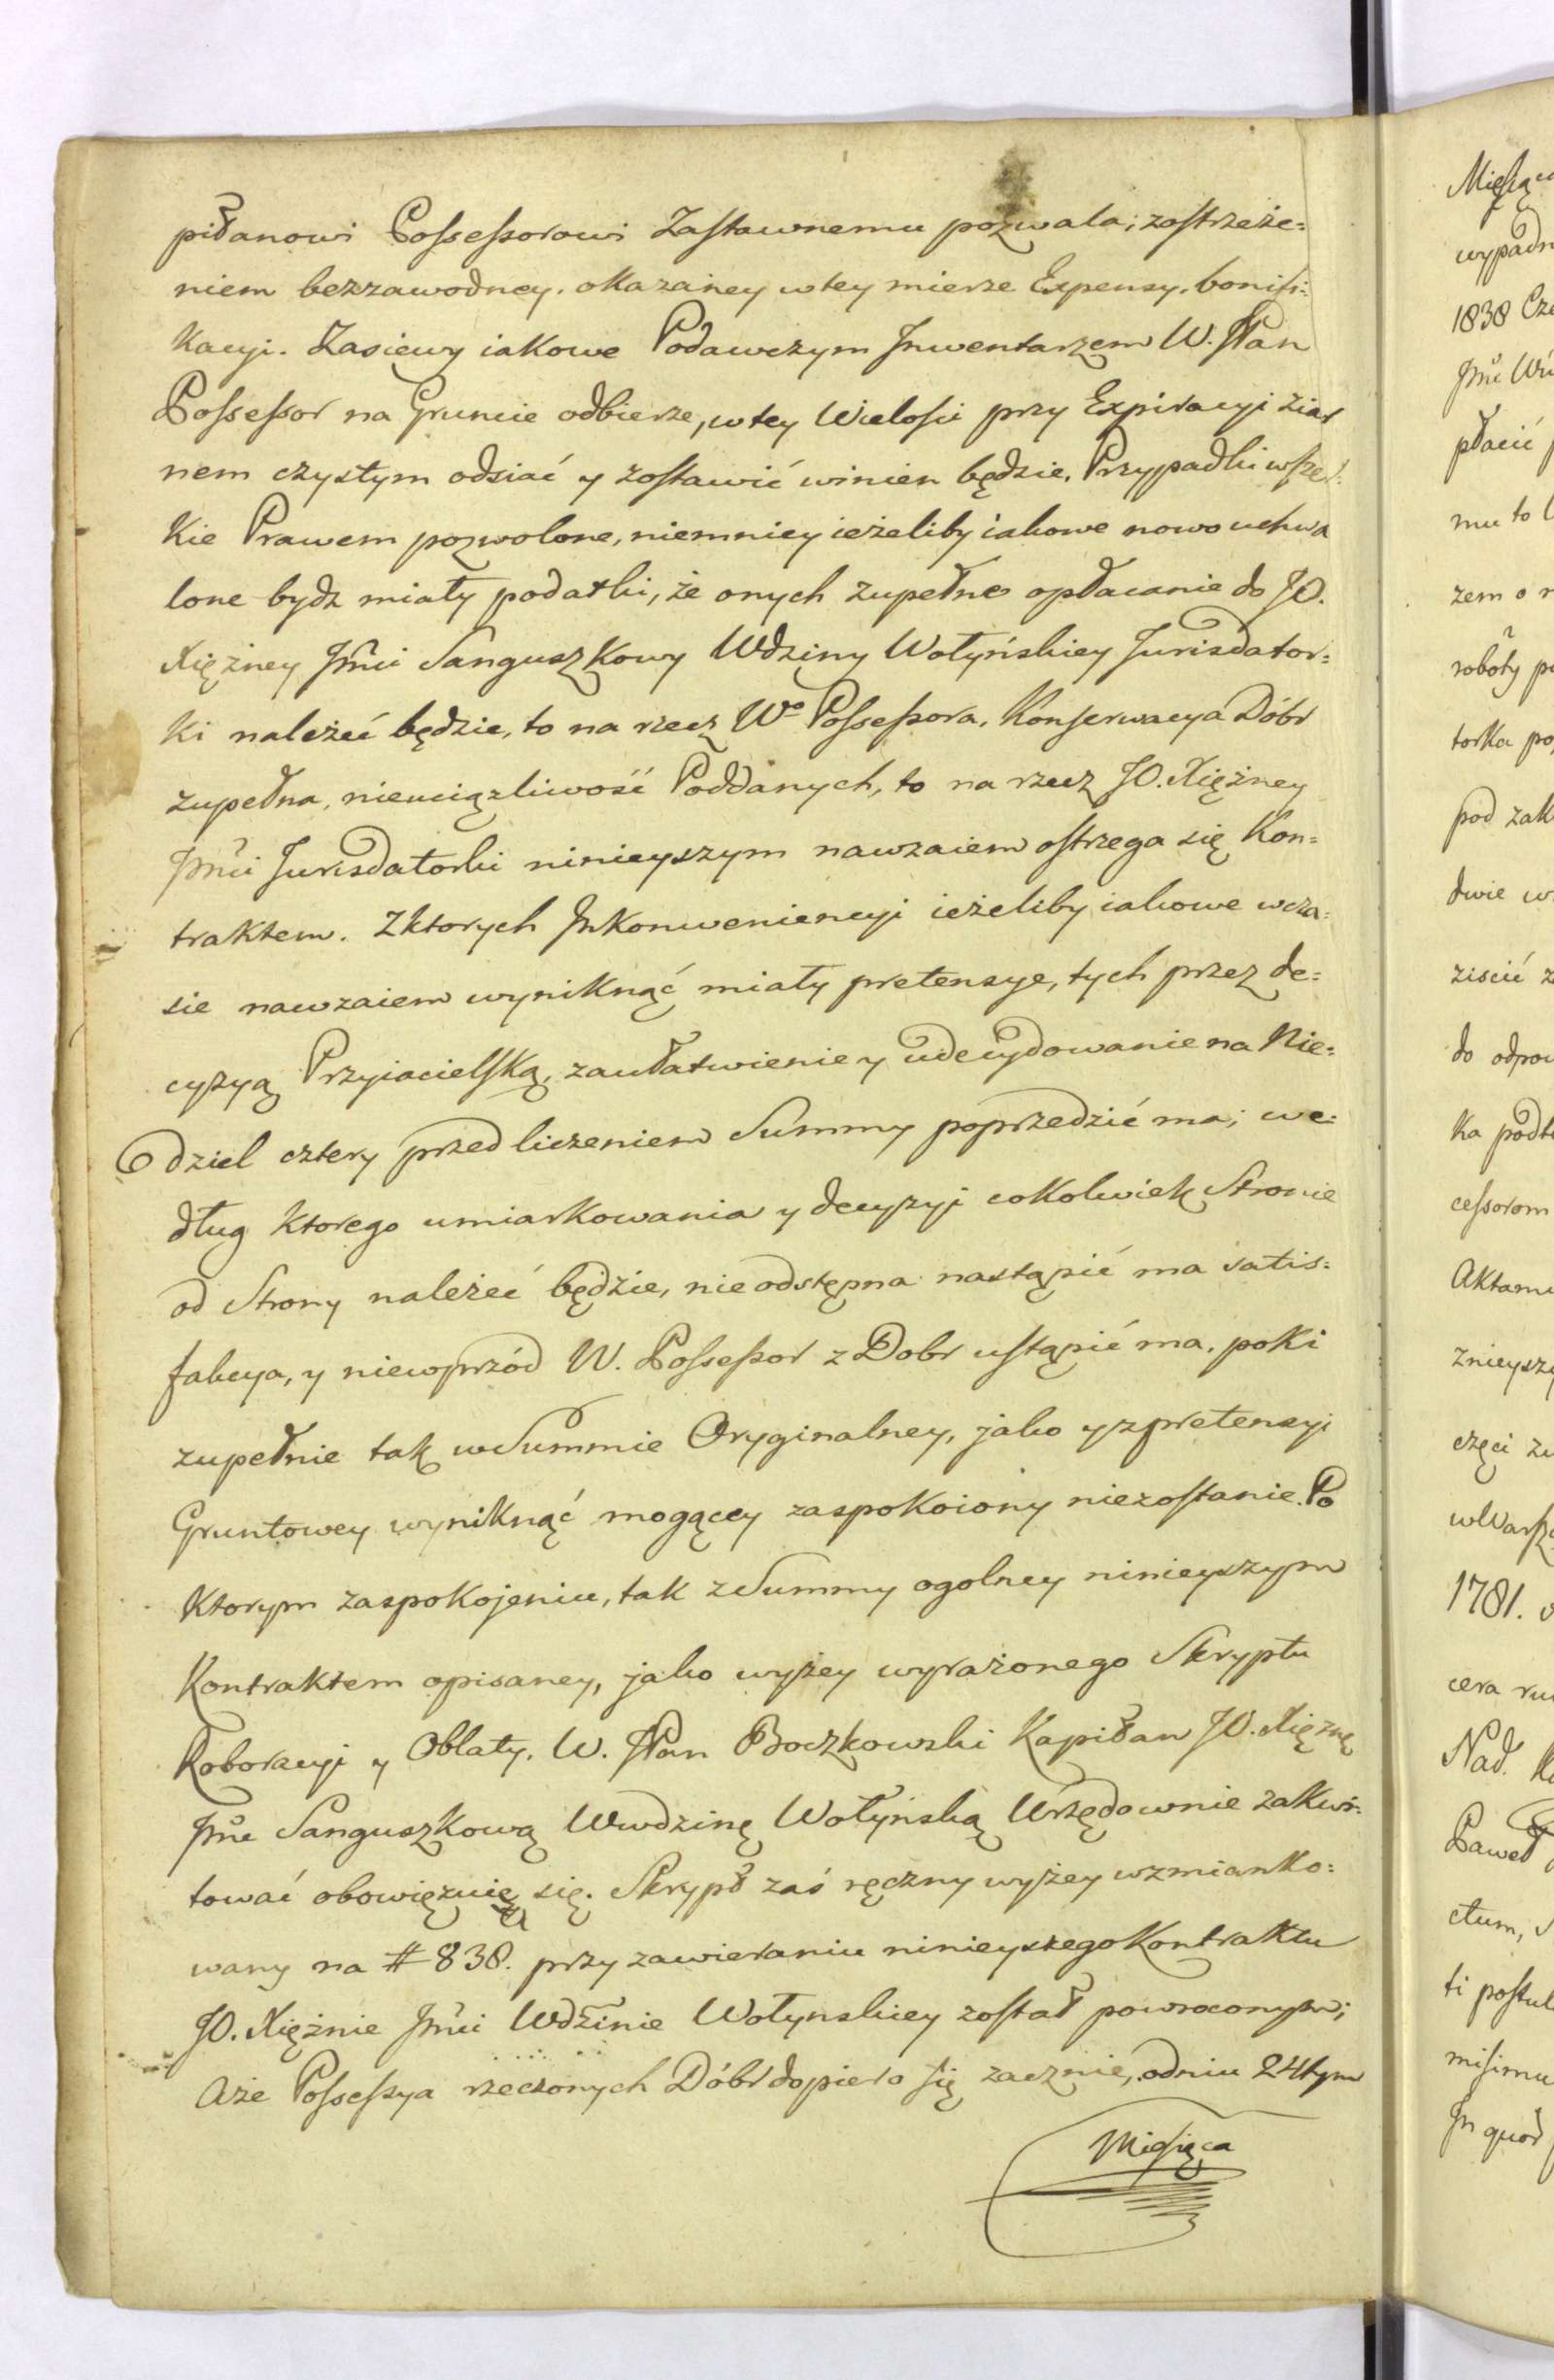 pitanowi Possessorowi Zastawnemu pozwala; zostrzeże=
niem bezzawodney, okazaney wtey mierze Expensy, bonifi=
kacyi. Zasiewy iakowe Podawczym Inwentarzem W. JPan
Possessor na Gruncie odbierze, wtey Wielosci przy Expiracyi ziar
nem czystym odsiać y zostawić winien będzie. Przypadki wszel=
kie Prawem pozwolone, niemniey ieżeliby iakowe nowo uchwa
lone bydz miały podatki, że onych zupełne opłacanie do JO.
Xiężney Jmći Sanguszkowy Wdziny Wołyńskiey Jurisdator=
ki należeć będzie, to na rzecz Wo Possessora. Konserwacya Dóbr
zupełna, nieuciązliwość Poddanych, to na rzecz JO. Xiężney
Jmći Jurisdatorki ninieyszym nawzaiem ostrzega się Kon=
traktem. Zktorych Inkonweniencyi ieżeliby iakowe wcza=
sie nawzaiem wyniknąć miały pretensye, tych przez de=
cyzyą Przyiacielską, zaułatwienie y udecydowanie na Nie=
dziel cztery przed liczeniem Summy poprzedzić ma; we=
dług ktorego umiarkowania y decyzyi cokolwiek Stronie
od Strony należeć będzie, nieodstępna nastąpić ma satis=
fakcya, y niewprzód W. Possessor z Dobr ustąpić ma, poki
zupełnie tak wSummie Oryginalney, jako yzpretensyi
Gruntowey wyniknąć mogącey zaspokoiony niezostanie. Po
ktorym zaspokojeniu, tak zSummy ogolney ninieyszym
Kontraktem opisaney, jako wyżey wyrażonego Skryptu
Roboracyi y Oblaty, W. JPan Boczkowski Kapitan JO. Xiężnę
Jmć Sanguszkową Wwdzinę Wołyńską Urzędownie zakwi=
tować obowięzuie się. Skrypt zaś ręczny wyżey wzmianko=
wany na # 838. przy zawieraniu ninieyszego Kontraktu
JO. Xiężnie Jmći Wdzinie Wołynskiey został powroconym;
Aże Possessya rzeczonych Dóbr dopiero się zacznie, odniu 24tym
Miesiąca
1838
płacić
mu to
zem o
roboty
torka
pod zak
dwie w
ziscić z
do odpow
cessorom
znieyszy
1781.
cera
Paweł
ctum,
In quor